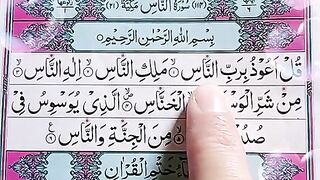 سُوْرَةُ النَّاسِ مَكِّيَّةٌ
بِسْمِ اللهِ الرَّحْمٰنِ الرَّحِيْمِ
قُلْ اَعُوْذُ بِرَبِّ النَّاسِ ۙ مَلِكِ النَّاسِ ۙ اِلٰهِ النَّاسِ ۙ
مِنْ شَرِّ الْوَسْ الْخَنَّاسِ ۙ الَّذِيْ يُوَسْوِسُ فِيْ
صُدُ مِنَ الْجِنَّةِ وَالنَّاسِ
خَتْمِ الْقُرْاٰنِ